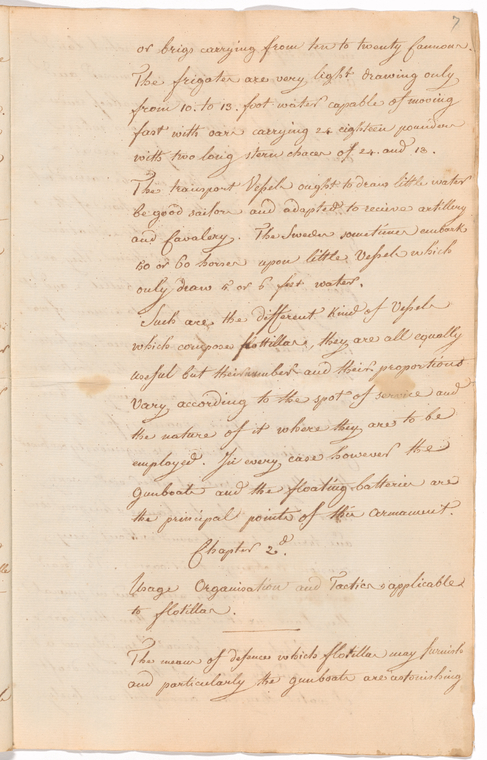 7
or brigs carrying from ten to twenty cannons.
The frigates are very light drawing only
from 10. to 13. foot water capable of moving
fast with oars carrying 24 eighteen pounders
with two long stern chaces of 24. and 18.
The transport Vessels ought to draw little water
be good sailors and adapted to recieve artillery
and Cavalery. The Swedes sometimes embark
50 or 60 horses upon little Vessels which
only draw 5 or 6 feet water.
Such are the different kind of Vessels
which compose flottillas, they are all equally
useful but their number and their proportions
vary according to the spot of service and
the nature of it where they are to be
employed. In every case however the
gunboats and the floating batteries are
the principal points of this armament.
Chapter 2d.
Usage Organisation and Tactics applicable
to flotillas.
The means of defences which flotillas may furnish
and particularly the gunboats are astonishing